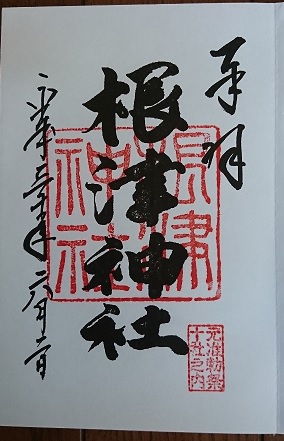 奉拝
根津神社
平成三十年六月二日
根津
神社
元准勅祭
十社之内